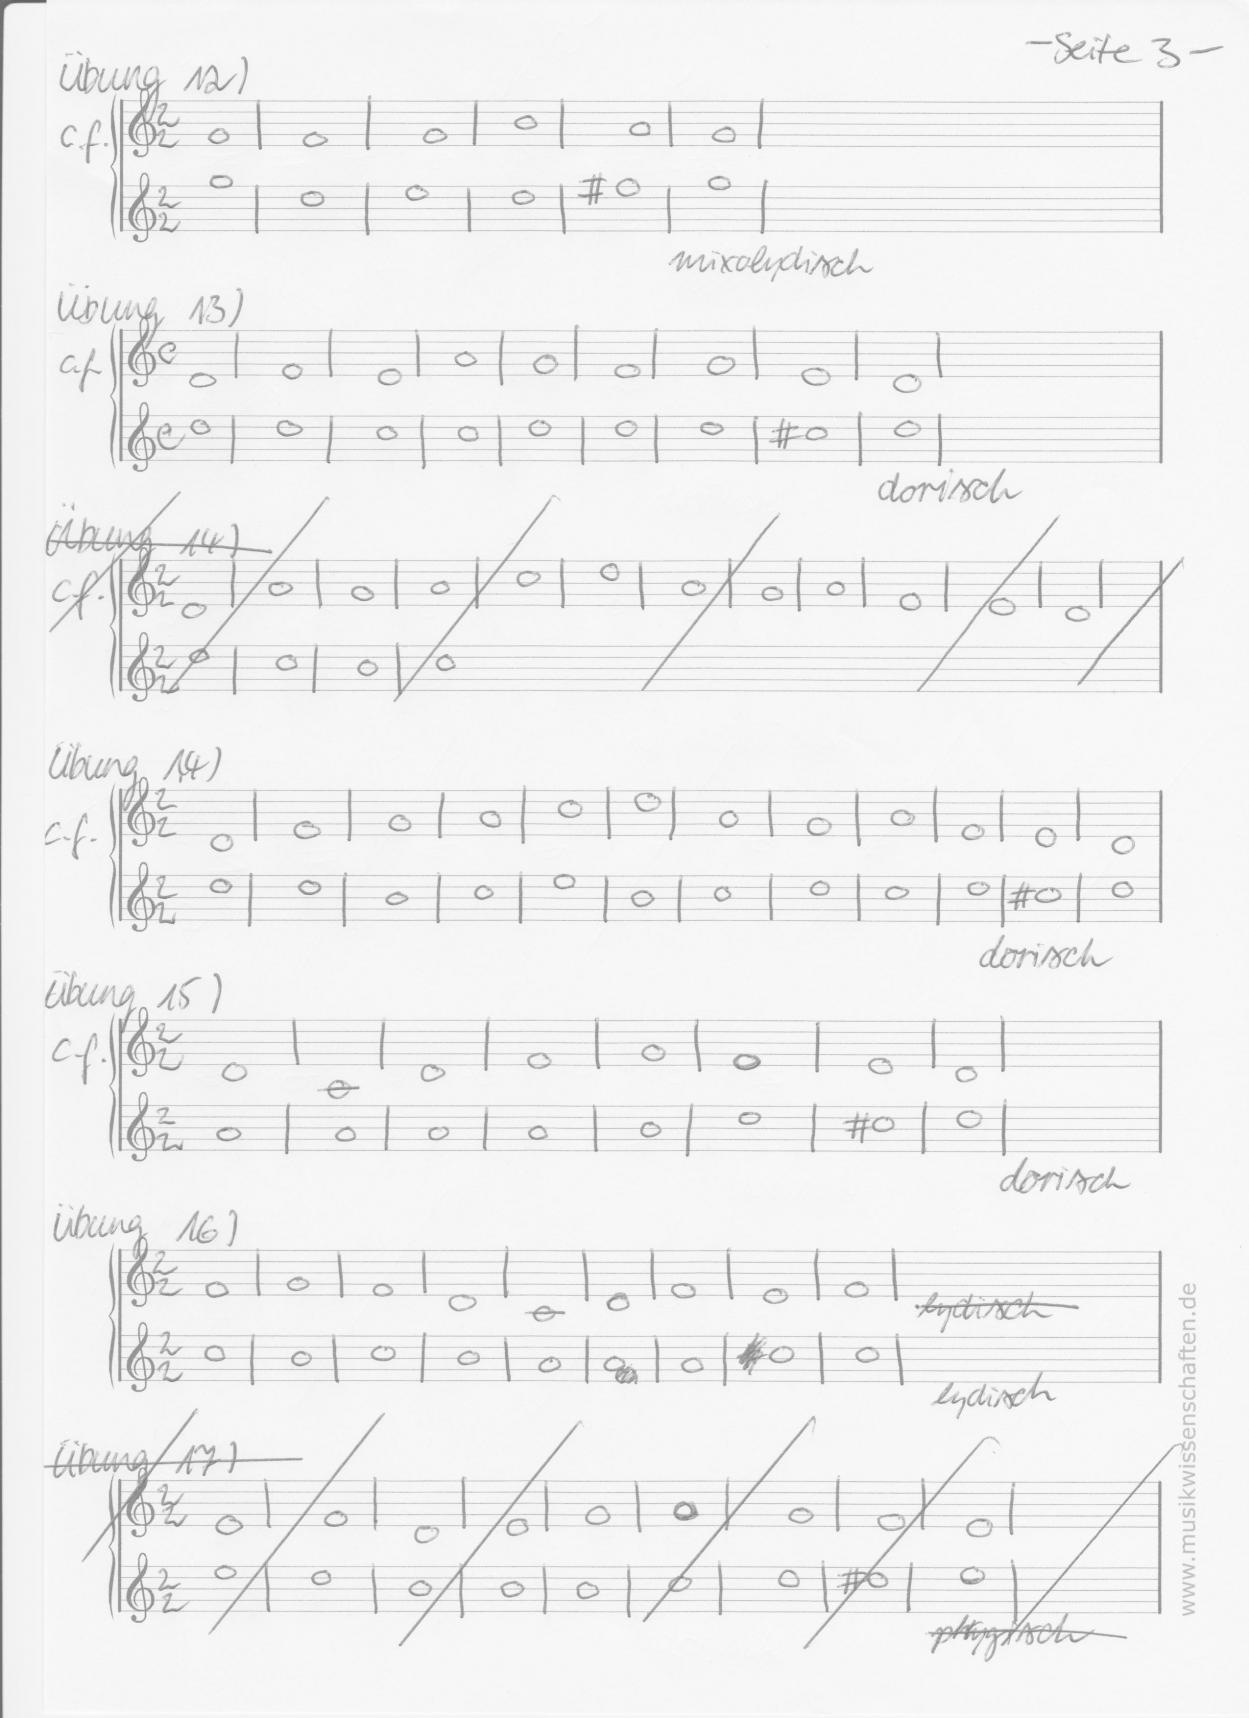 -Seite 3-
Übung 12)
c.f.
mixolydisch
Übung 13)
c.f.
dorisch
Übung 14)
c.f.
Übung 14)
c.f.
dorisch
Übung 15)
c.f.
dorisch
Übung 16)
lydisch
lydisch
Übung 17)
phrygisch
www.musikwissenschaften.de